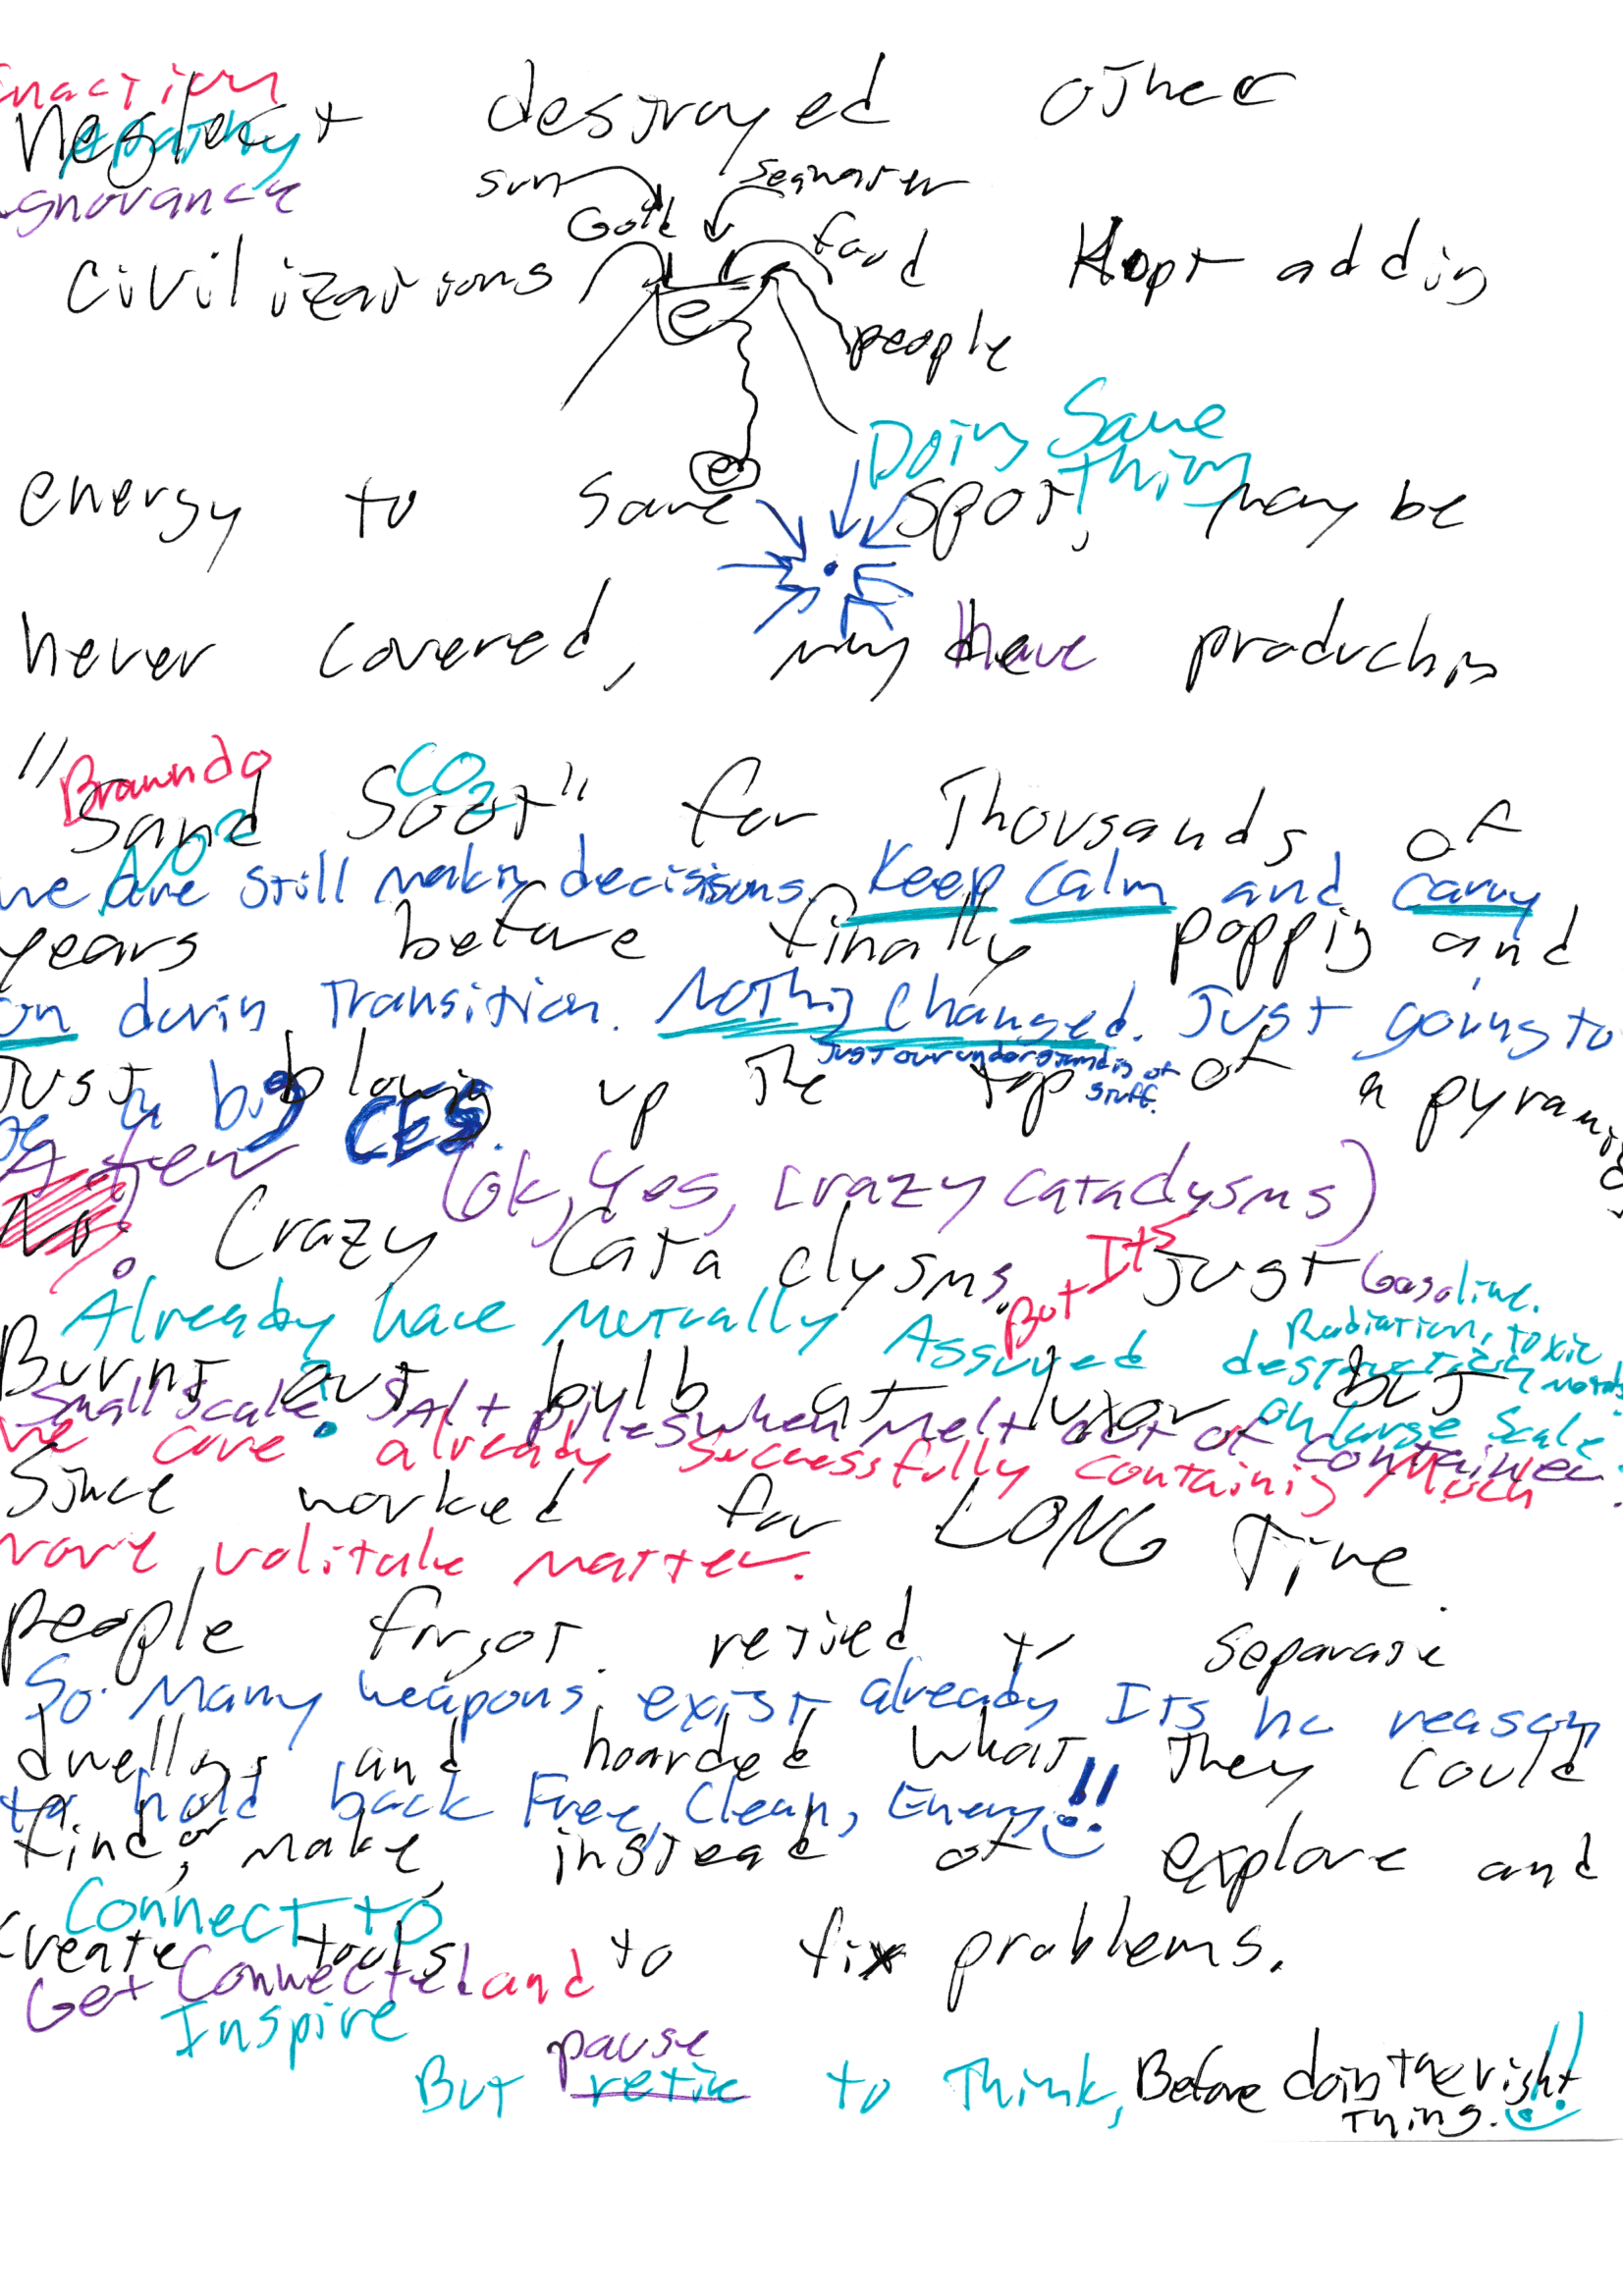 Inaction
Neglect destroyed other
Apathy
Ignorance
sun seawater
Gold food
Civilizations Kept addin
e people
Doing Same
thing
e
energy to same spot, may be
never covered, may have producing
"Brawndo CO2
Sand Soot" for Thousands of
NO2
we are still making decisions. Keep Calm and carry
years before finally poppig and
on durin Transition. Nothig Changed. Just going to
Just our understandig of stuff.
Just blowig up The top of a pyramid
be a big CES.
A few (ok, yes, crazy cataclysms)
No Crazy Cataclysms. But It's Just Gasoline.
Already have Mutually Assured destruction
Radiation, toxic
Burnt out bulb at luxor but
Small Scale? SAlt piles when Melt out of container.
on large scale
we cure already Successfully containig Much
Since worked for LONG Time.
more volitale matter.
people forgot. retired to separate
So Many weapons exist already Its no reason
dwellngs and hoarded what They could
to hold back Free, Clean, Energy!!
find, or make, instead of explore and
Connect to
create tools to fix problems.
Get Connected and
Inspire
pause
But retire to Think, Before doin The right
Thing. !!